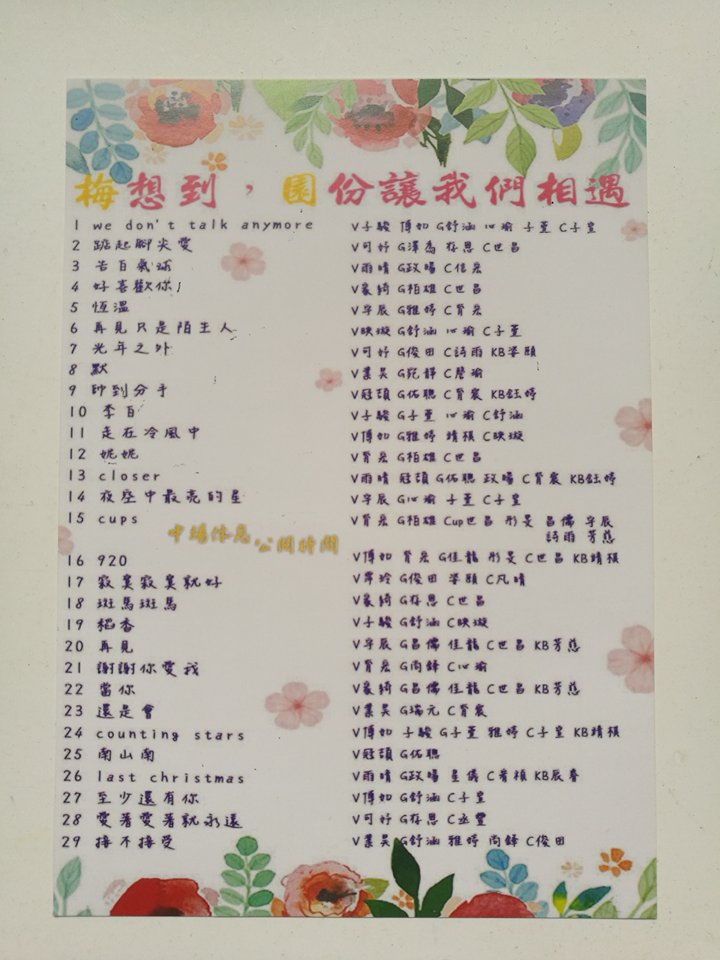 梅想到，園份讓我們相遇
1 we don't talk anymore V子駿 傅如 G舒涵 心瑜 子堇 C子皇
2 踮起腳尖愛 V可妤 G澤為 存恩 C世昌
3 告白氣球 V雨晴 G政暘 C信宏
4 好喜歡你! V豪綺 G柏雄 C世昌
5 恆溫 V宇辰 G雅婷 C背宏
6 再見只是陌生人 V映璇 G舒涵 心瑜 C子堇
7 光年之外 V可妤 G俊田 C詩雨 KB姿頤
8 默 V業昊 G宛靜 C瑜
9 秒到分手 V冠頡 G佑聰 C背宸 KB鈺婷
10 李白 V子駿 G子堇 心瑜 C舒涵
11 走在冷風中 V傅如 G雅婷 靖積 C映璇
12 妮妮 V背宏 G柏雄 C世昌
13 closer V雨晴 冠頡 G佑聰 政暘 C背宸 KB鈺婷
14 夜空中最亮的星 V宇辰 G心瑜 子堇 C子皇
15 cups V背宏 G柏雄 Cup世昌 彤旻 昌儒 宇辰
詩雨 芳慈
中場休息 公關時間
16 920 V傅如 背宏 G佳龍 彤旻 C世昌 KB靖積
17 寂寞寂寞就好 V玲 G俊田 姿頤 C凡晴
18 斑馬斑馬 V豪綺 G存恩 C世昌
19 稻香 V子駿 G舒涵 C映璇
20 再見 V宇辰 G昌儒 佳龍 C世昌 KB芳慈
21 謝謝你愛我 V背宏 G尚鋒 C心瑜
22 當你 V豪綺 G昌儒 佳龍 C世昌 KB芳慈
23 還是會 V業昊 G瑞元 C背宸
24 counting stars V傅如 子駿 G子堇 雅婷 C子皇 KB靖積
25 南山南 V冠頡 G佑聰
26 last christmas V雨晴 G政暘 星儀 C KB辰睿
27 至少還有你 V傅如 G舒涵 C子皇
28 愛著愛著就永遠 V可妤 G存恩 C丞豐
29 接不接受 V業昊 G舒涵 雅婷 尚鋒 C俊田